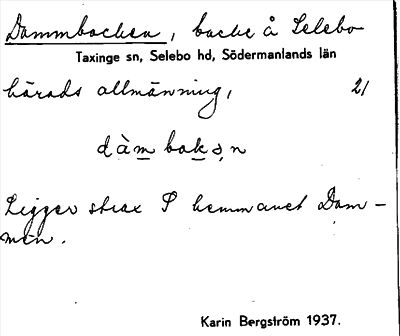 Dammbacken, backe å Selebo
Taxinge sn, Selebo hd, Södermanlands län
härads allmänning, 21
dàm bakə̣n
Ligger strax S hemmanet Dam-
men.
Karin Bergström 1937.